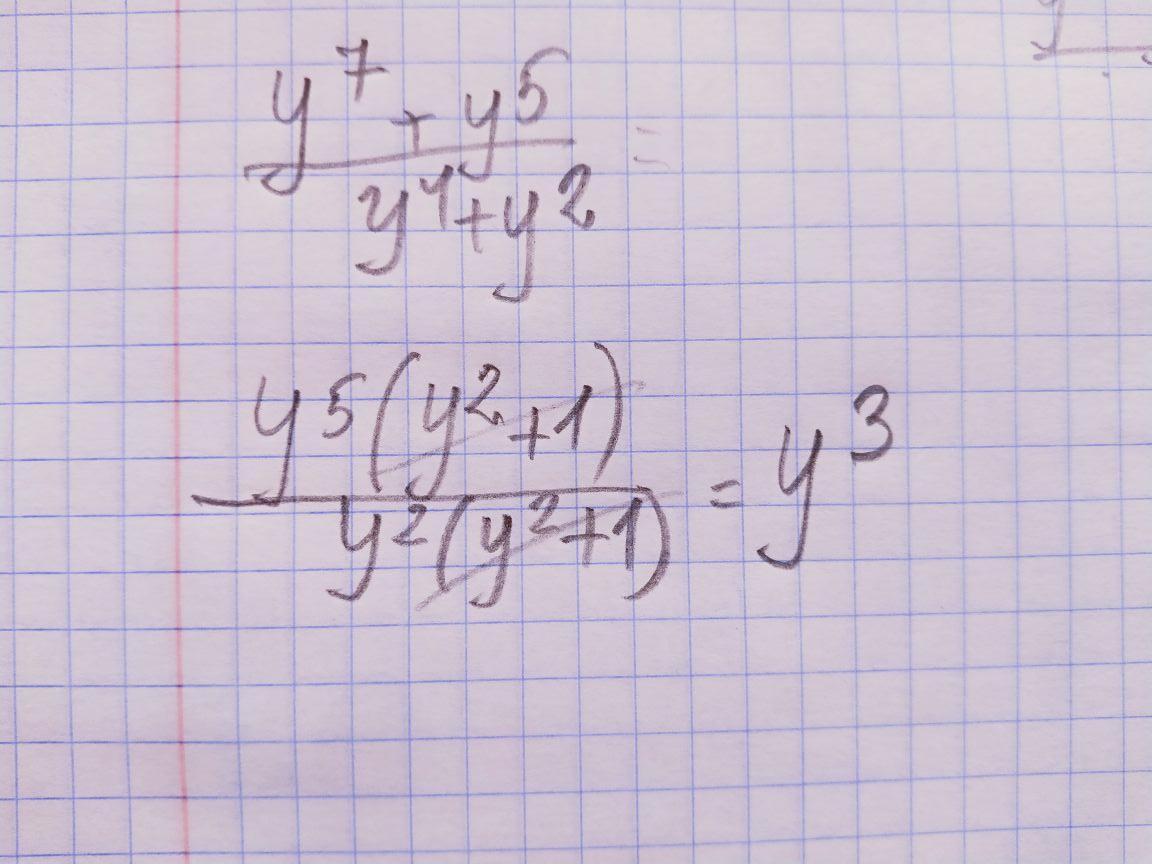 y⁷ + y⁵ =
y⁴ + y²
y⁵(y²+1) = y³
y²(y²+1)